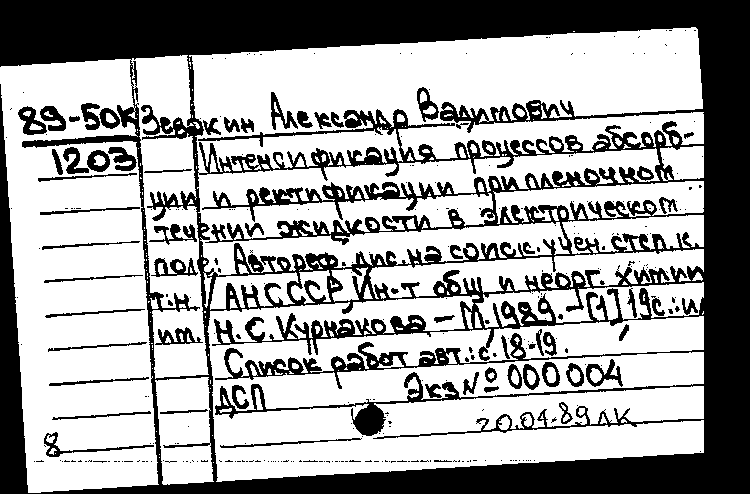 89-50к Зевакин, Александр Вадимович
1203 Интенсификация процессов абсорб-
ции и ректификации при пленочном
течении жидкости в электрическом
поле: Автореф. дис. на соиск. учен. степ. к.
т.н. /АН СССР, Ин-т общ. и неорг. химии
им. Н.С. Курнакова. – М. 1989. – [1] 19с.: ил
Список работ авт.: с. 18-19.
ДСП Экз № 000004
20.04.89 ЛК
8